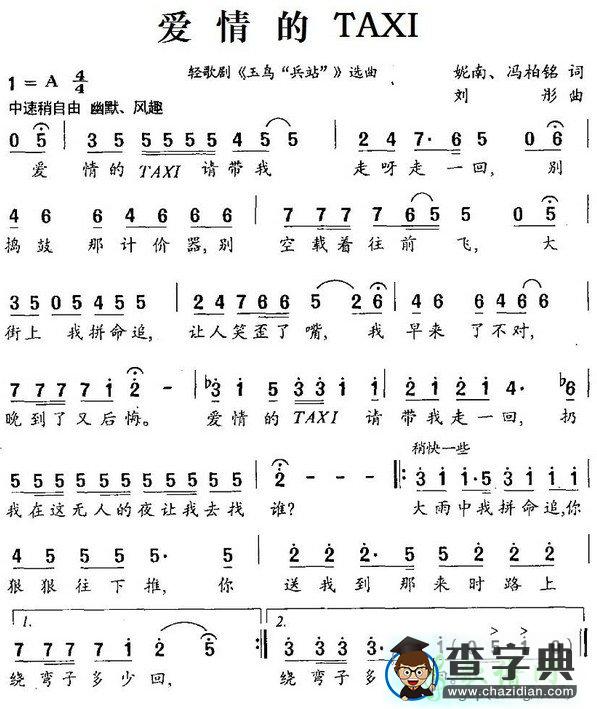 爱情的 TAXI
轻歌剧《玉鸟“兵站”》选曲
妮南、冯柏铭 词
1=A 4/4
刘彤 曲
中速稍自由 幽默、风趣
0 5 3 5 5 5 5 5 4 5 5 2 4 7· 6 5 0 6
爱 情的 TAXI 请 带我 走呀走一回, 别
4 6 6 4 6 6 6 7 7 7 7 6 5 5 0 5
捣鼓 那计价器,别 空载着往前飞, 大
3 5 0 5 4 5 5 2 4 7 6 6 5 2 6 2 4 7 6 5 5
街上 我拼命追, 让人笑歪了嘴, 我 早来了不对,
7 7 7 7 7 1 2 - ♭3 1 5 3 3 1 1 2 2 1 2 1 4· ♭6
晚到了又后悔。 爱情的 TAXI 请 带我走一回, 扔
稍快一些
5 5 5 5 5 5 5 5 5 5 5 2 - - - 3 1 1·5 3 1 1 1
我在这无人的夜让我去找 谁? 大雨中我拼命追,你
4 5 5 5 5· 5 2 2· 2 2· 2 2
狠狠往下推, 你 送我到那来时路上
1. 2.
7 7 7 1 7 2 5 3 3 3 3· 1 ( 0 5 1 0 )
绕弯子多少回, 绕弯子多
查字典
www.chazidian.com